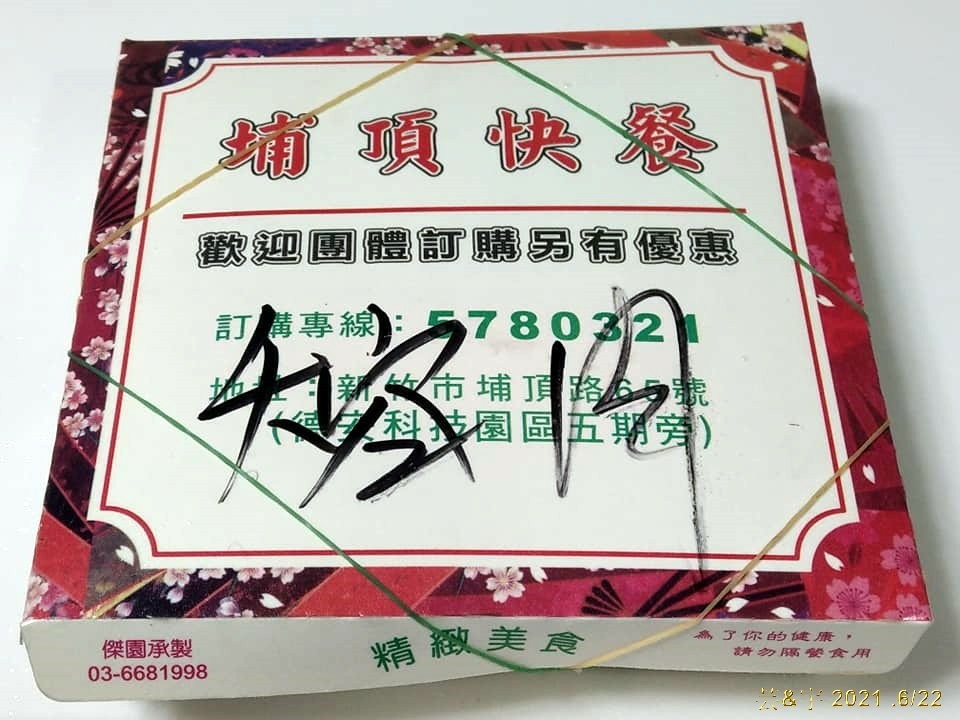 埔頂快餐
歡迎團體訂購另有優惠
訂購專線：5780321
地址：新竹市埔頂路65號
(德安科技園區五期旁)
傑園承製
03-6681998
精緻美食
為了你的健康，
請勿隔餐食用
2021 .6/22